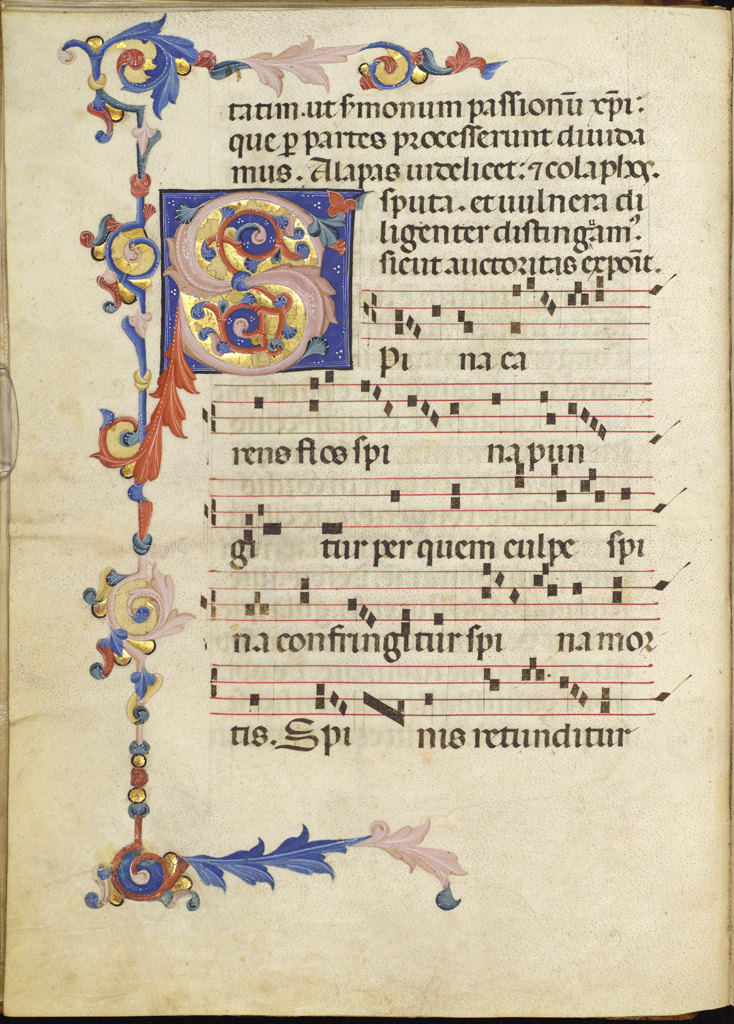 tatim. ut s̄monum passionū xp̄i:
que ꝑ partes processerunt diuida
mus. Alapas uidelicet: ⁊ colaphoꝝ.
sputa. et uulnera di
ligenter disting̊am᷒.
sicut auctoritas expoīt.
SPi na ca
rens flos spi na pun
gi tur per quem culpe spi
na confringitur spi na mor
tis. Spi nis retunditur